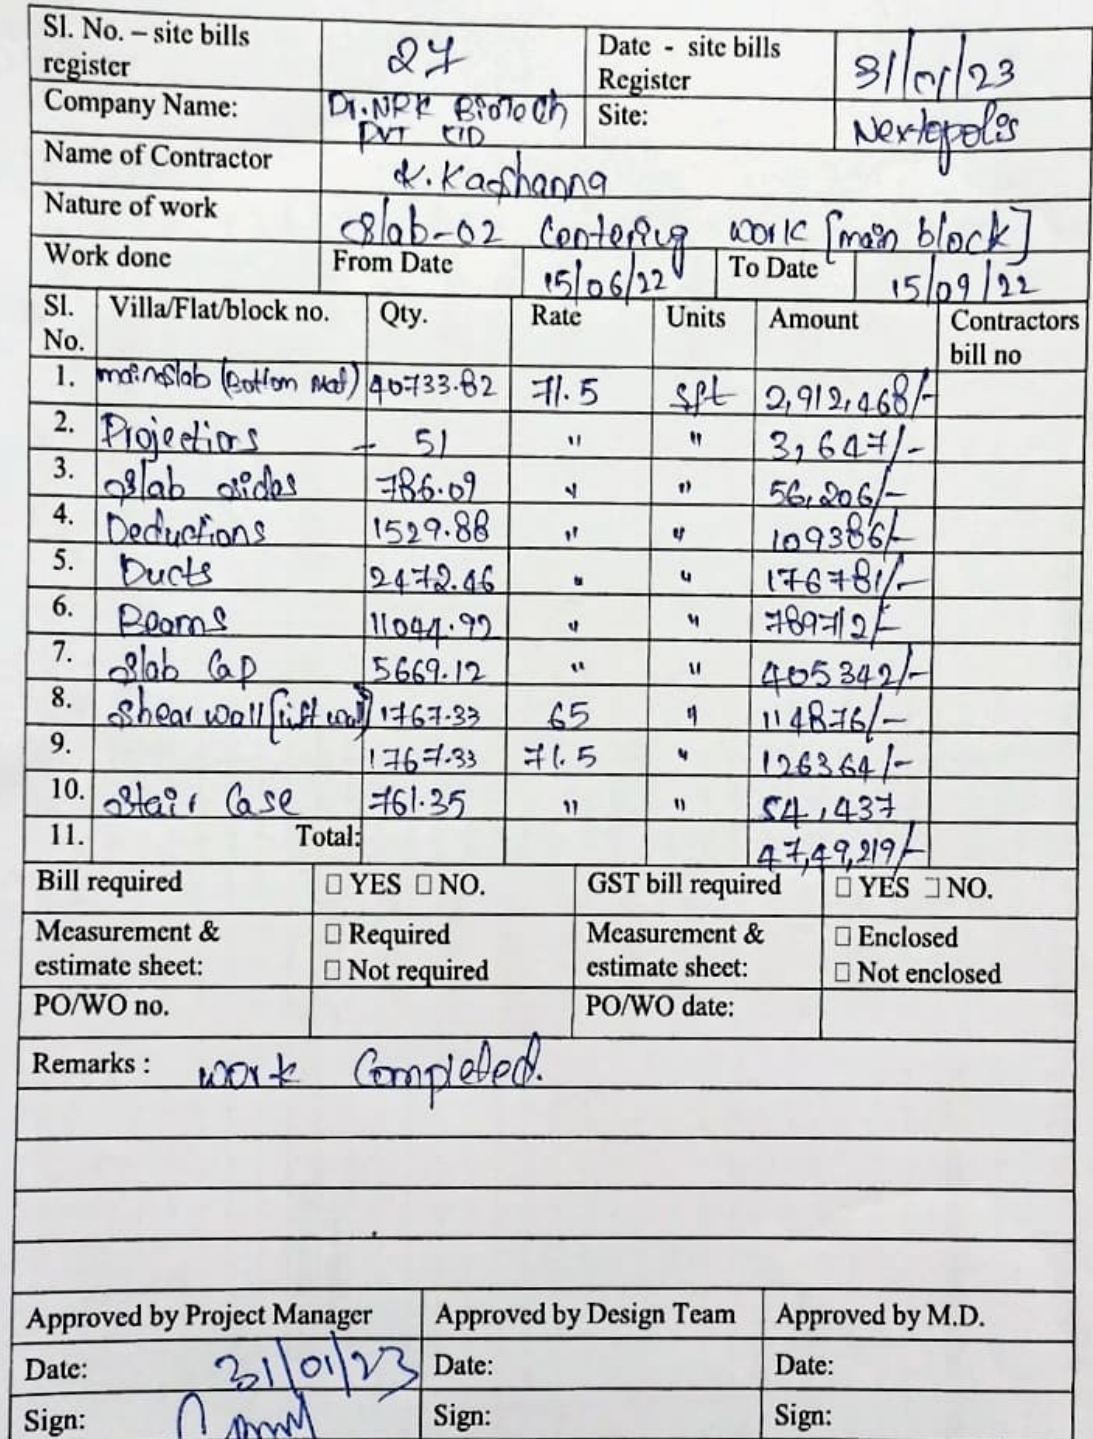 Sl. No. – site bills register 27 Date - site bills Register 31/01/23
Company Name: Dr. NRK BioTech PVT LTD Site: Nextopolis
Name of Contractor K. Kashanna
Nature of work Slab-02 Centering work [main block]
Work done From Date 15/06/22 To Date 15/09/22
Sl. No. Villa/Flat/block no. Qty. Rate Units Amount Contractors bill no
1. mainslab (Bottom Mat) 40733.82 71.5 sft 2,912,468/-
2. Projections - 51 " " 3,647/-
3. Slab sides 786.09 " " 56,206/-
4. Deductions 1529.88 " " 109386/-
5. Ducts 2472.46 " " 176781/-
6. Beams 11044.92 " " 789712/-
7. Slab Cap 5669.12 " " 405342/-
8. Shear wall [lift wall] 1767.33 65 " 114876/-
9. 1767.33 71.5 " 126364/-
10. Stair Case 761.35 " " 54,437
11. Total: 47,49,219/-
Bill required □ YES □ NO. GST bill required □ YES □ NO.
Measurement & estimate sheet: □ Required □ Not required Measurement & estimate sheet: □ Enclosed □ Not enclosed
PO/WO no. PO/WO date:
Remarks : work Completed.
Approved by Project Manager Approved by Design Team Approved by M.D.
Date: 31/01/23 Date: Date:
Sign: Sign: Sign: